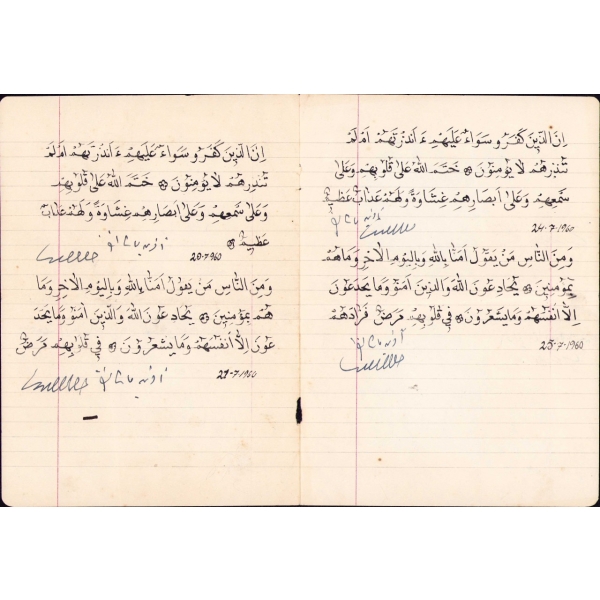 اِنَّ الَّذِينَ كَفَرُو سَوَاءٌ عَلَيْهِمْ ءَ اَنْذَرْتَهُمْ اَمْ لَمْ
تُنْذِرْهُمْ لَا يُؤْمِنُونَ ۞ خَتَمَ اللّٰهُ عَلٰى قُلُوبِهِمْ وَعَلٰى
سَمْعِهِمْ وَعَلٰى اَبْصَارِهِمْ غِشَاوَةٌ وَلَهُمْ عَذَابٌ عَظِيمٌ
24-7-1960
وَمِنَ النَّاسِ مَنْ يَقُولُ اٰمَنَّا بِاللّٰهِ وَبِالْيَوْمِ الْاٰخِرِ وَمَا هُمْ
بِمُؤْمِنِينَ ۞ يُخَادِعُونَ اللّٰهَ وَالَّذِينَ اٰمَنُوا وَمَا يَخْدَعُونَ
اِلَّا اَنْفُسَهُمْ وَمَا يَشْعُرُونَ ۞ فِي قُلُوبِهِمْ مَرَضٌ فَزَادَهُمُ
25-7-1960
اِنَّ الَّذِينَ كَفَرُو سَوَاءٌ عَلَيْهِمْ ءَ اَنْذَرْتَهُمْ اَمْ لَمْ
تُنْذِرْهُمْ لَا يُؤْمِنُونَ ۞ خَتَمَ اللّٰهُ عَلٰى قُلُوبِهِمْ
وَعَلٰى سَمْعِهِمْ وَعَلٰى اَبْصَارِهِمْ غِشَاوَةٌ وَلَهُمْ عَذَابٌ
عَظِيمٌ ۞
20-7-960
وَمِنَ النَّاسِ مَنْ يَقُولُ اٰمَنَّا بِاللّٰهِ وَبِالْيَوْمِ الْاٰخِرِ وَمَا
هُمْ بِمُؤْمِنِينَ ۞ يُخَادِعُونَ اللّٰهَ وَالَّذِينَ اٰمَنُوا وَمَا يَخْدَ
عُونَ اِلَّا اَنْفُسَهُمْ وَمَا يَشْعُرُونَ ۞ فِي قُلُوبِهِمْ مَرَضٌ
21-7-1960